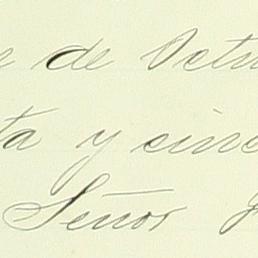 de Octu
ta y cinc
Señor